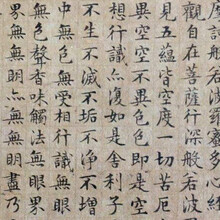 觀自在菩薩行深般若波
見五蘊皆空度一切苦厄
異空空不異色色即是空
想行識亦復如是舍利子
不生不滅不垢不淨不增
中無色無受想行識無眼
無色聲香味觸法無眼界
界無無明亦無無明盡乃